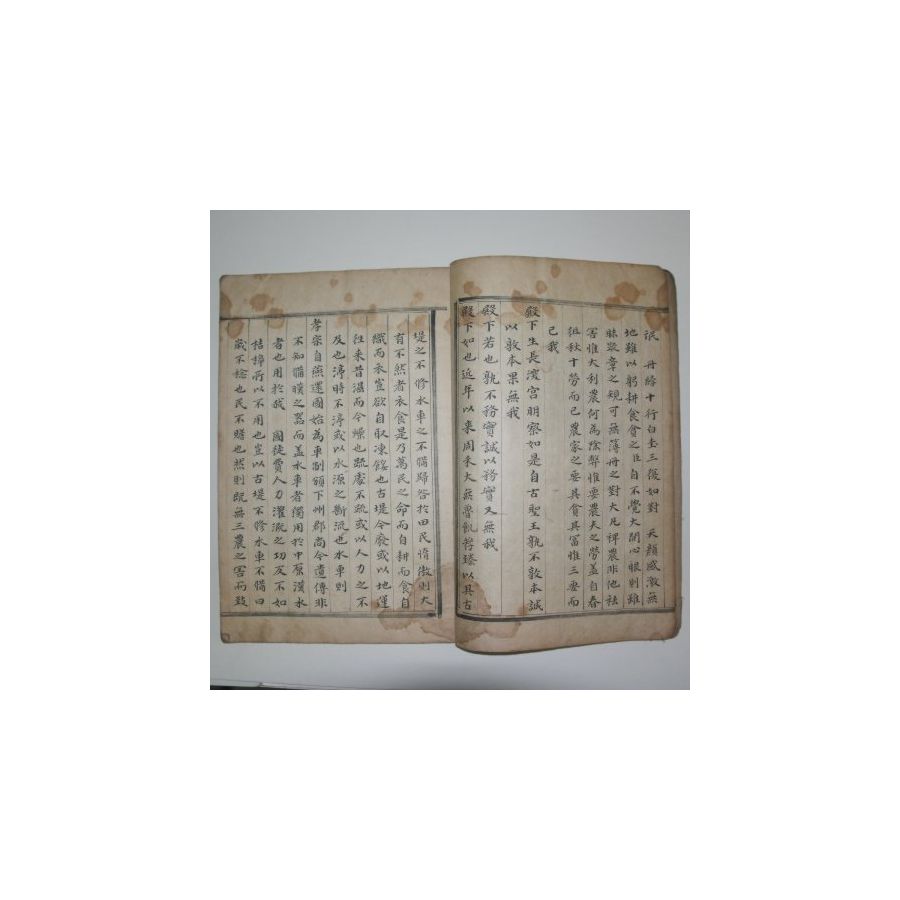 祇 丹綍十行白圭三復如對 天顔感激無
地雖以躬耕食貧之臣自不覺大開心眼則雖
昧弊章之規可無薄冊之對大凡裨農非他祛
害惟大利農何為除弊惟要農夫之勞盖自春
徂秋十勞而已農家之要具貧具冨惟三要而
已我
殿下生長深宮明察如是自古聖王孰不敦本誠
以敦本果無我
殿下若也孰不務實誠以務實又無我
殿下如也近年以来周禾大無魯飢荐臻以具古
堤之不修水車之不備歸咎於田民惰微則大
有不然者衣食是乃萬民之命而自耕而食自
織而衣豈欲自取凍餒也古堤今廢或以地運
徃来昔濕而今燥也疏鑿不疏或以人力之不
及也渟時不渟或以水源之斷流也水車則
孝宗自燕還國始為車制頒下州郡尚今遺傳非
不知備暵之器而盖水車者獨用於中原漢水
者也用於我 國徒費人力灌溉之功反不如
桔槹所以不用也豈以古堤不修水車不備曰
歲不稔也民不贍也然則既無三農之害而致